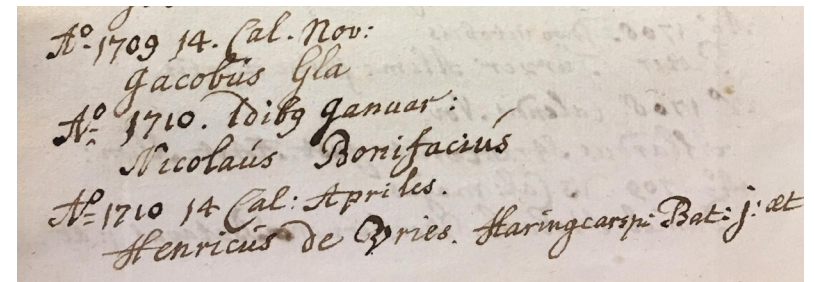 Aº. 1709 14. Cal. Nov:
Jacobus Gla
Aº. 1710. Idibꝫ Januar:
Nicolaus Bonifacius
Aº. 1710 14 Cal: Apriles.
Henricus de Vries. Haringcarsp: Bat: j: æt